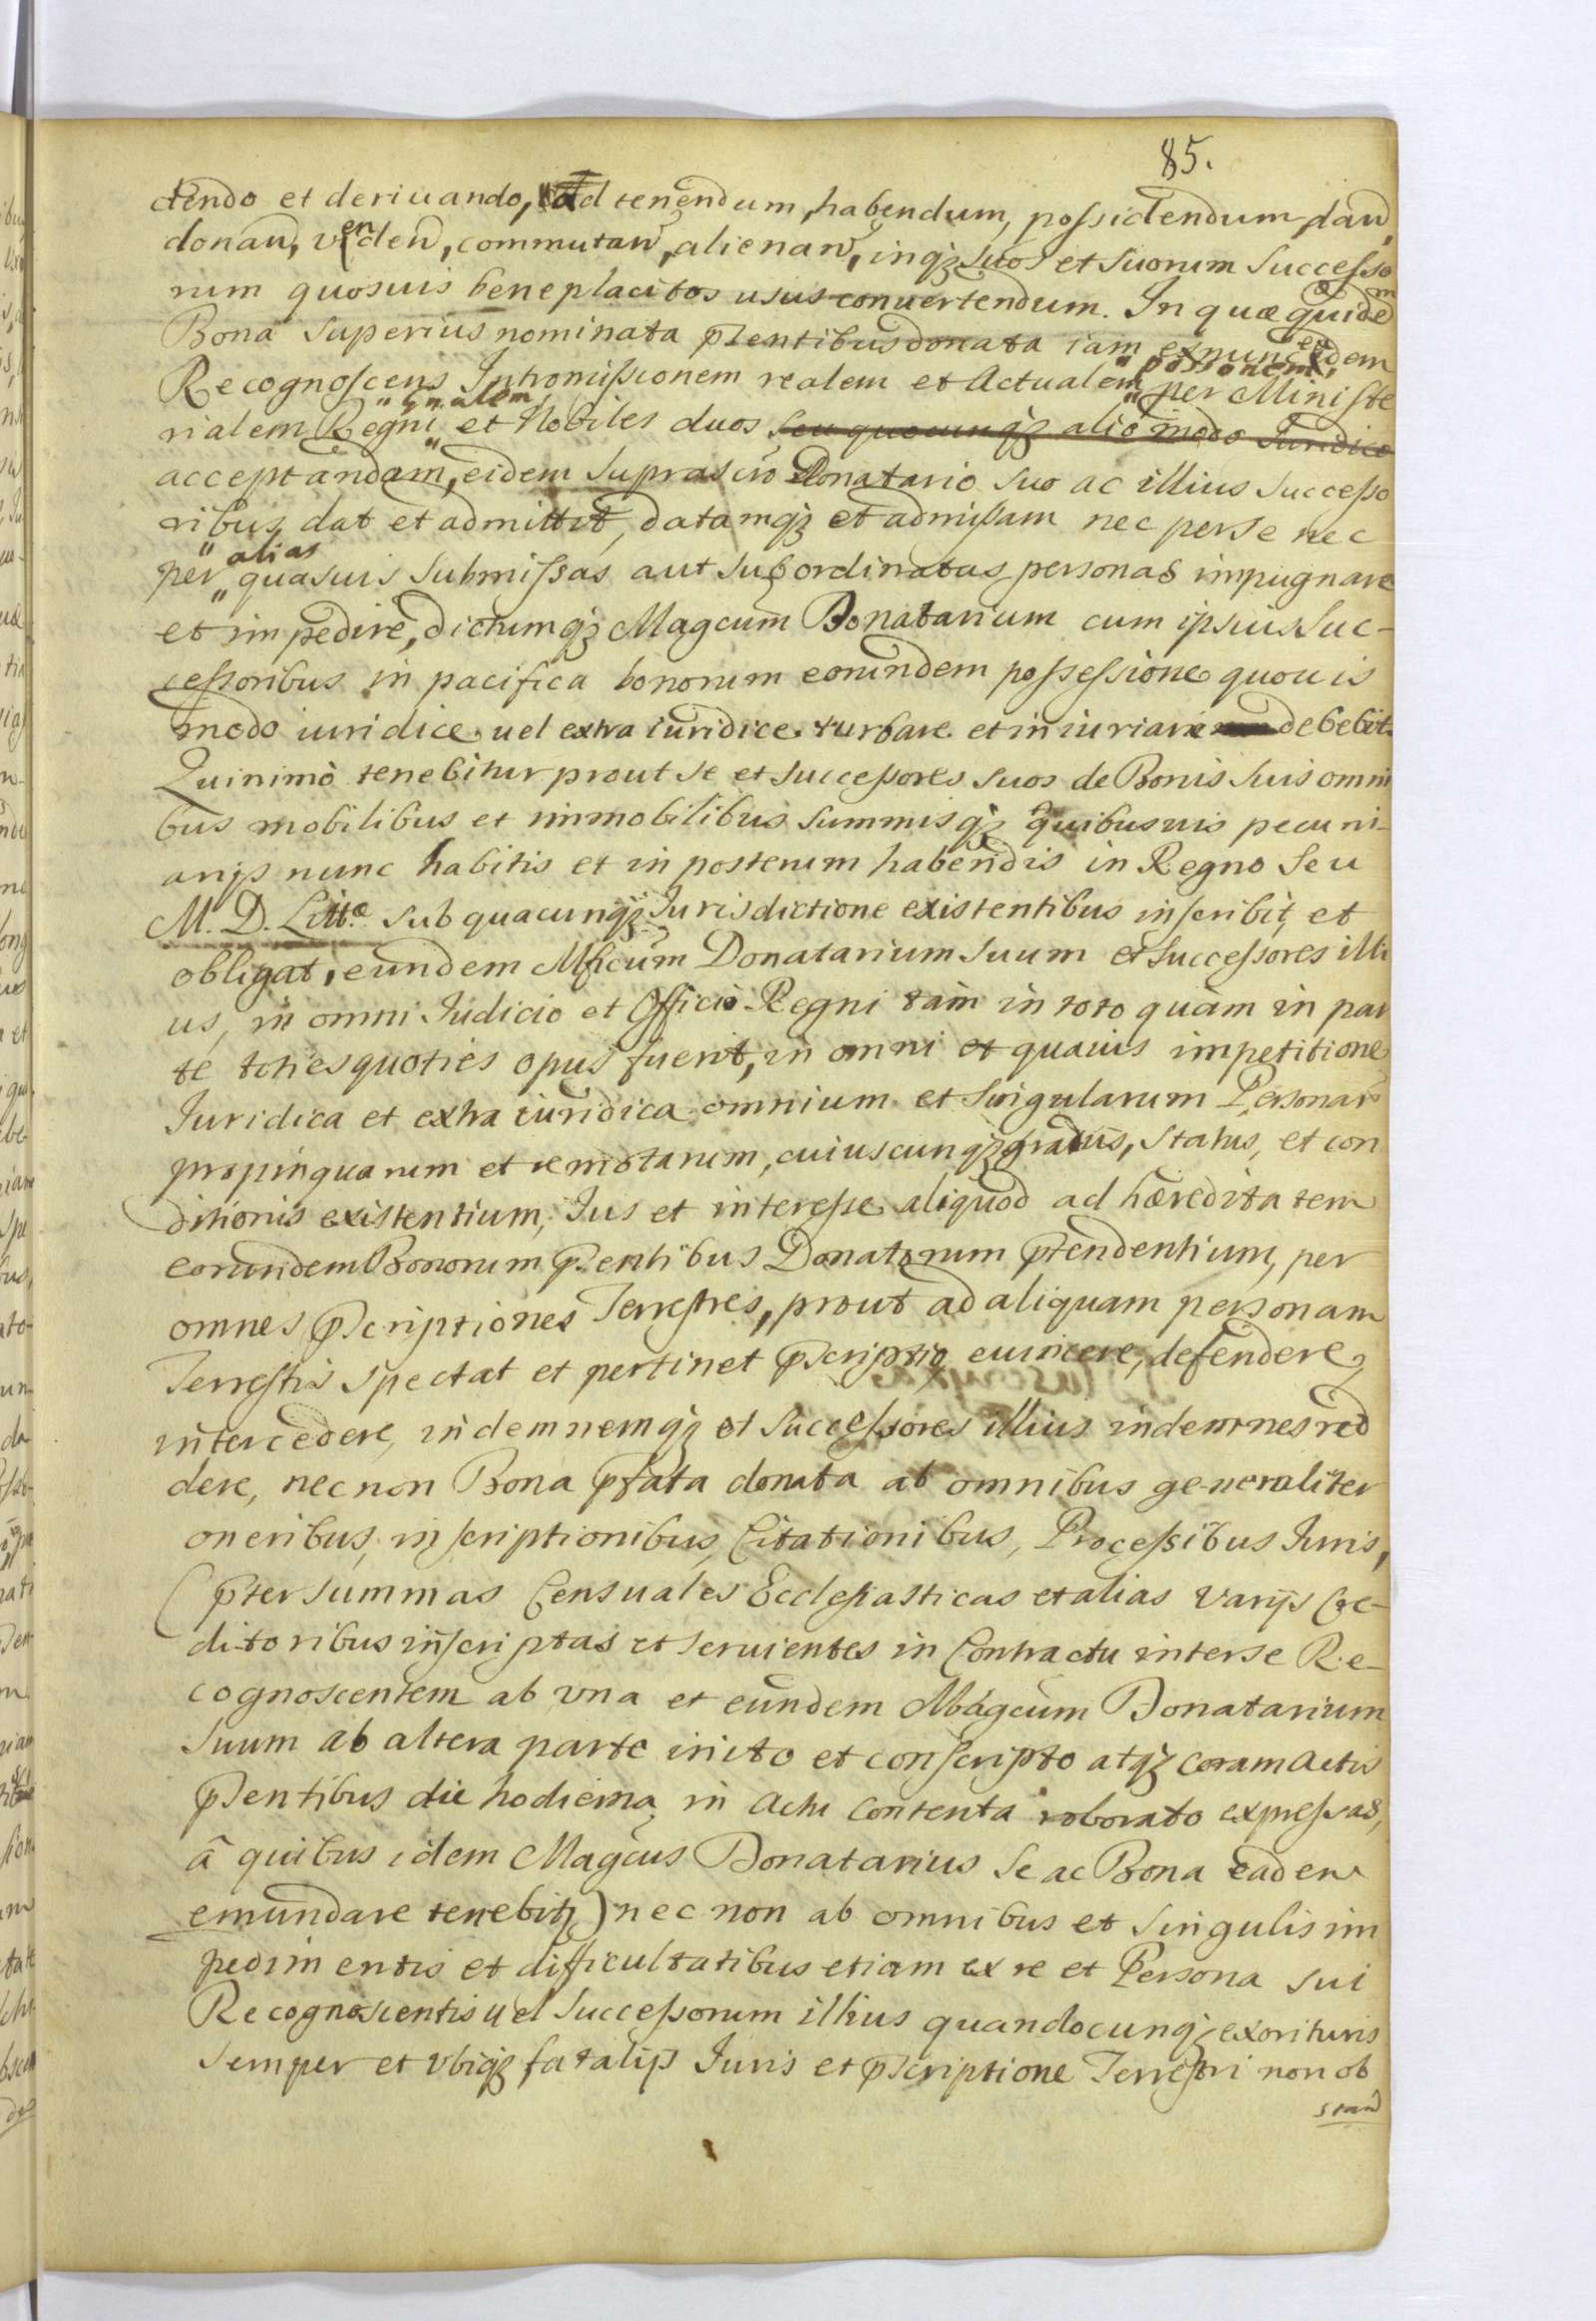 85.
ctendo et deriuando, ad tenendum, habendum, possidendum, dan̄,
donan̄, venden̄, commutan̄, alienan̄, inqȝ suos et suorum Successo
rum quosuis beneplacitos usus conuertendum. In quæ quidem
Bona superius nominata pn̄tibus donata iam ex nunc eadem
Recognoscens Intromissionem realem et Actualem " possionem, " per Ministe
rialem Regni " gn̄alem " et Nobiles duos seu quocunqȝ alio modo Iuridice
acceptandam, eidem suprascr̄o Donatario suo ac illius successo
ribus dat et admittit, datamqȝ et admissam nec per se nec
per " alias " quasuis submissas aut subordinatas personas impugnare
et impedire, dictumqȝ Magcum̄ Donatarium cum ipsius Suc-
cessoribus in pacifica bonorum eorundem possessione quouis
modo iuridice uel extra iuridice turbare et iniuriare debebit.
Quinimò tenebitur prout se et successores suos de Bonis suis omni
bus mobilibus et immobilibus summisqȝ quibusuis pecuni-
arijs nunc habitis et in posterum habendis in Regno seu
M. D. Litt.æ sub quacunqȝ Iurisdictione existentibus inscribit, et
obligat, eundem Mficum̄ Donatarium suum et successores illi
us, in omni Iudicio et Officio Regni tàm in toto quàm in par
te toties quoties opus fuerit, in omni et quauis impetitione
Iuridica et extra iuridica omnium et singularum Personar̄
propinquarum et remotarum, cuiuscunqȝ gradus, status, et con
ditionis existentium, Ius et interesse aliquod ad hæreditatem
eorundem Bonorum pn̄tibus Donatorum p̄tendentium, per
omnes p̄scriptiones Terrestres, prout ad aliquam personam
Terrestris spectat et pertinet p̄scriptio, euincere, defendere,
intercedere, indemnemqȝ et Successores illius indemnes red
dere, nec non Bona p̄fata donata ab omnibus generaliter
oneribus, inscriptionibus, Citationibus, Processibus Iuris,
(p̄ter summas Censuales Ecclesiasticas et alias varijs Cre-
ditoribus inscriptas et seruientes in Contractu inter se Re-
cognoscentem ab vna et eundem Magcum̄ Donatarium
Suum ab altera parte inito et conscripto atqȝ coram actis
pn̄tibus die hodierna in Actu contenta roborato expressas,
â quibus idem Magcus̄ Donatarius se ac Bona eadem
emundare tenebitȝ) nec non ab omnibus et singulis im
pedimentis et difficultatibus etiam ex re et Persona sui
Recognoscentis uel Successorum illius quandocunqȝ exorituris
semper et vbiqȝ fatalijs Iuris et p̄scriptione Terrestri non ob
stan̄